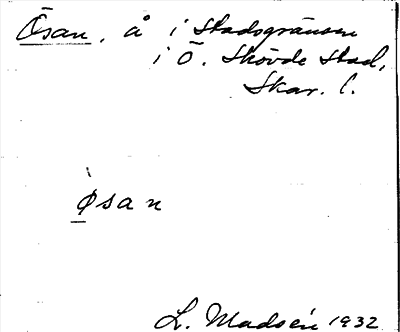 Ösan, å i Stadsgränsen
i Ö. Skövde Stad,
Skar. l.
Øsan
L. Madsén 1932